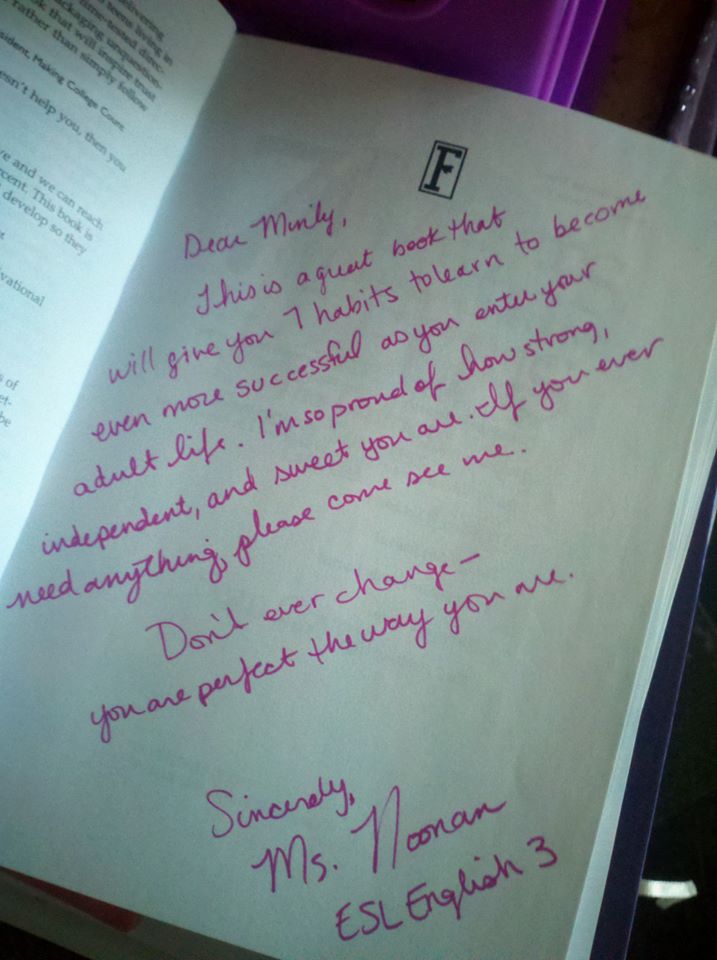 teens living in
time-tested direc-
that will inspire trust
rather than simply follow
Making College Count
help you, then you
and we can reach
This book is
develop so they
of
be
F
Dear Minly,
This is a great book that
will give you 7 habits to learn to become
even more successful as you enter your
adult life. I'm so proud of how strong,
independent, and sweet you are. If you ever
need anything, please come see me.
Don't ever change -
you are perfect the way you are.
Sincerely,
Ms. Noonan
ESL English 3